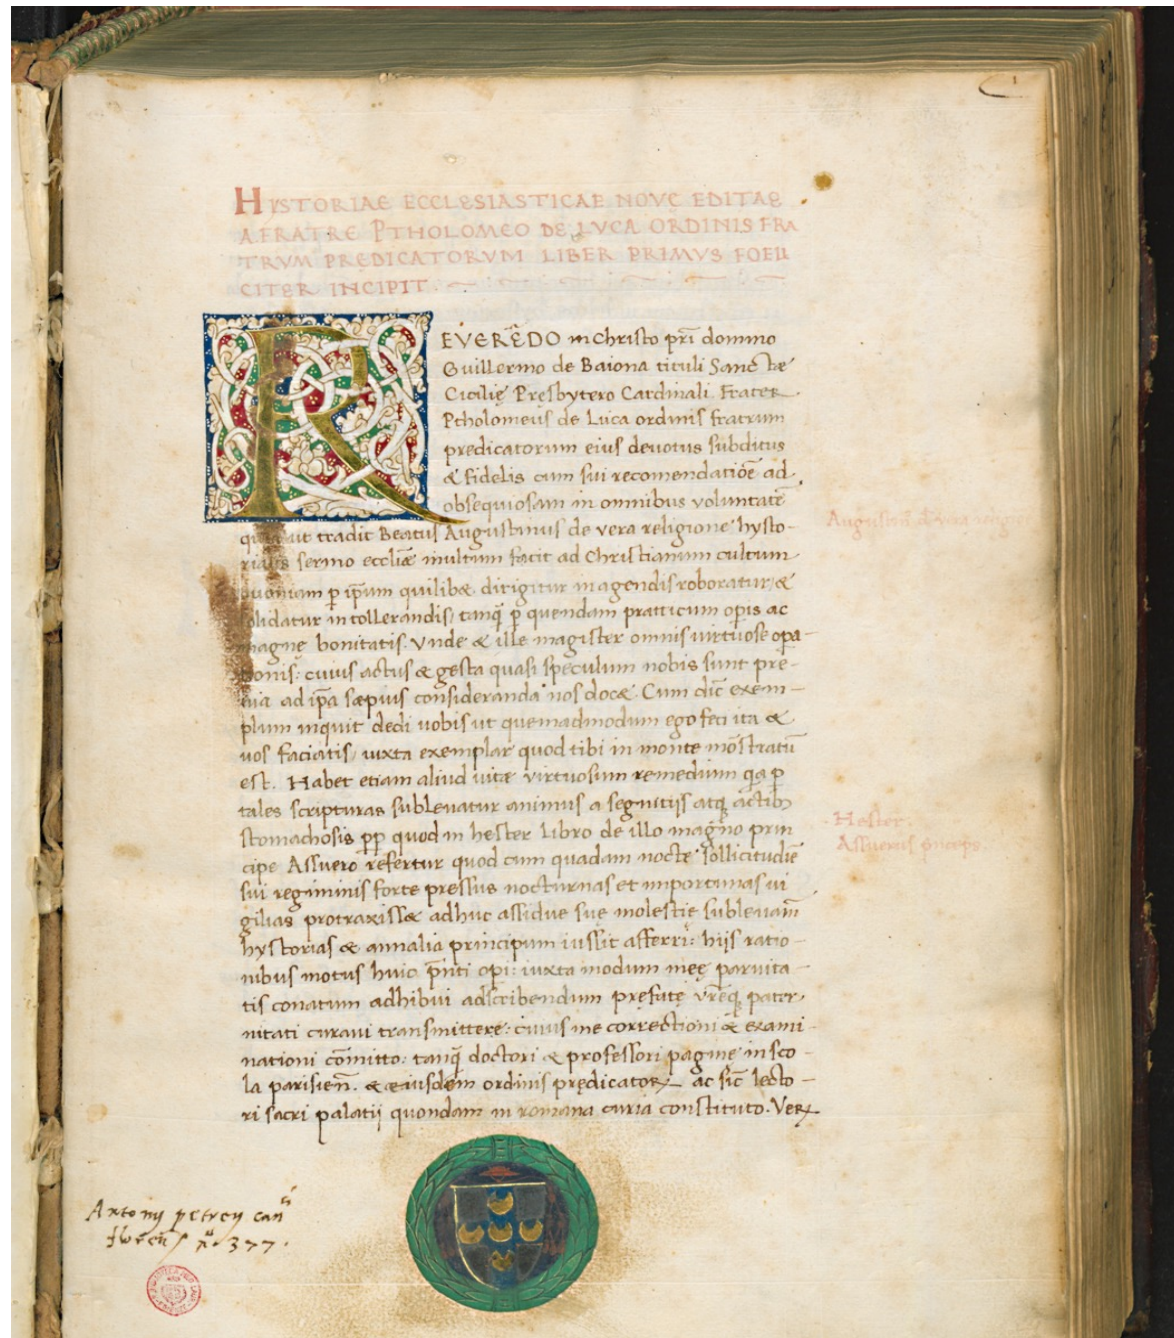 1
HYSTORIAE ECCLESIASTICAE NOVE EDITAE
A FRATRE PTHOLOMEO DE LVCA ORDINIS FRA
TRVM PREDICATORVM LIBER PRIMVS FOELI
CITER INCIPIT.
REVERE͞DO in Christo pr̄i domino
Guillermo de Baiona tituli Sanctæ
Cicilię Pręsbytero Cardinali. Frater
Ptholomeus de Luca ordinis fratrum
predicatorum eius deuotus subditus
& fidelis cum sui recomendatiōe ad
obsequiosam in omnibus voluntatē
ut tradit Beatus Augustinus de vera religione hysto-
riales sermo ecclīæ multum facit ad Christianum cultum
quoniam p ip̄um quilibæ dirigitur in agendis roboratur, &
solidatur in tollerandis, tanq̄ p quendam pratticum opis ac
magnę bonitatis. Vnde & ille magister omnis uirtuose opa-
tionis: cuius actus & gesta quasi speculum nobis sunt pre-
uia ad ip̄a sæpius consideranda nos docæ. Cum dic̄ exem-
plum inquit dedi uobis ut quemadmodum ego feci ita &
uos faciatis, iuxta exemplar quod tibi in monte mōstratū
est. Habet etiam aliud uitæ virtuosum remedium qa p
tales scripturas subleuatur animus a segnitijs atq actib
stomachosis pp quod in hester libro de illo magno prin
cipe Assuero refertur quod cum quadam nocte sollicitudīe
sui regiminis forte pressus nocturnas et importunas ui
gilias protraxissæ adhuc assidue suę molestię subleuam̄
hystorias & annalia principum iussit afferri: hijs ratio-
nibus motus huic pn̄ti opi: iuxta modum meę paruita-
tis conatum adhibui ad scribendum prefatę vr̄eq pater,
nitati curaui transmittere: cuius me correctioni & exami-
nationi cōmitto: tanq̄ doctori & professori paginę in sco-
la parisien̄. & eiusdem ordinis prędicatoꝝ ac sic̄ lecto-
ri sacri palatij quondam in romana curia constituto. Veꝝ
Augustinus de vera religione
Hester.
Assuerus princeps.
Antonij petrey can
n. 377.